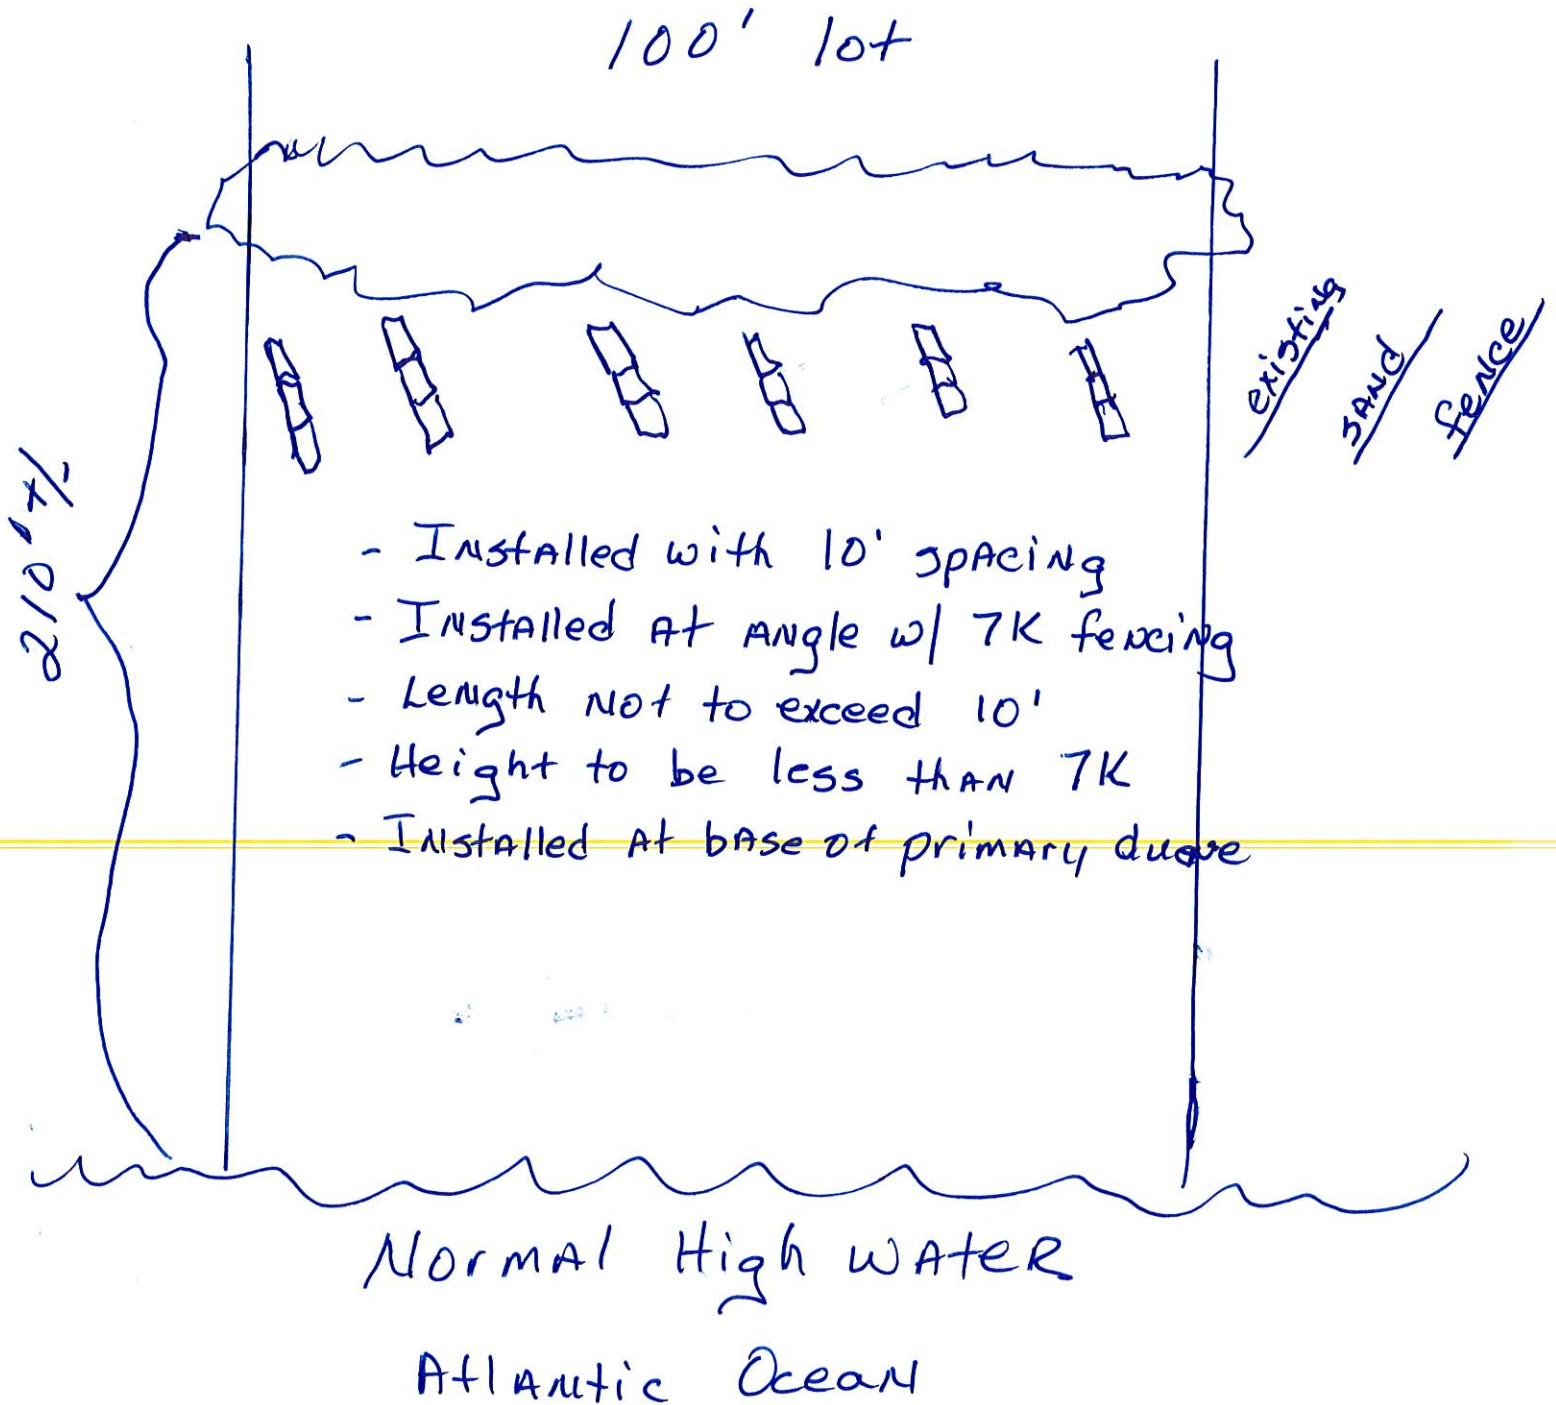 100' lot
existing
SAND
fence
210' +/-
- Installed with 10' spacing
- Installed At Angle w/ 7K fencing
- Length Not to exceed 10'
- Height to be less than 7K
- Installed At base of primary dune
Normal High Water
Atlantic Ocean